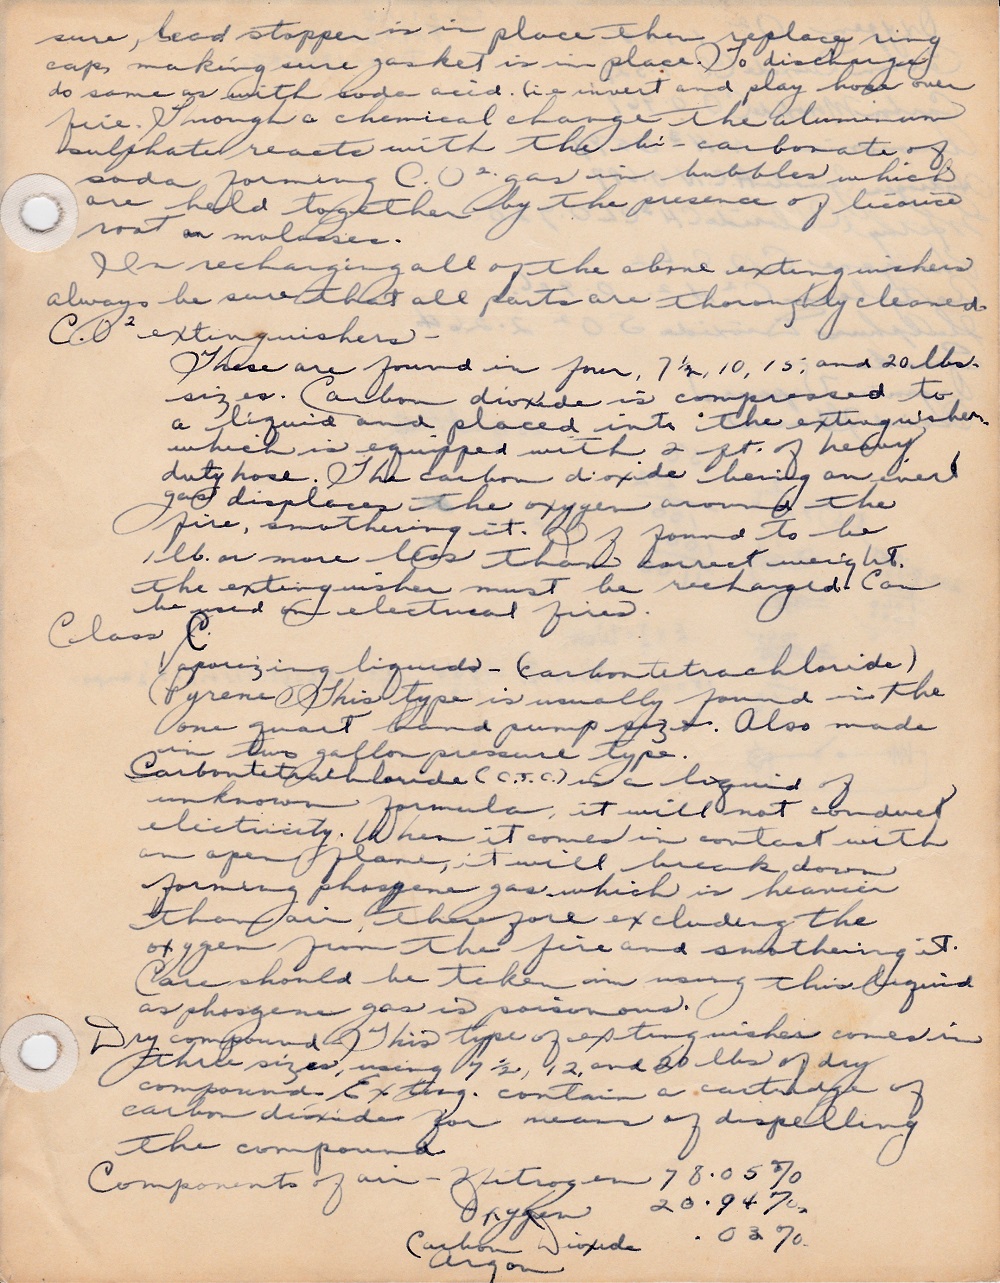 sure, lead stopper is in place then replace ring
cap, making sure gasket is in place. To discharge
do same as with soda acid. (i.e invert and play hose over
fire. Through a chemical change the aluminum
sulphate reacts with the bi-carbonate of
soda forming C.O². gas in bubbles which
are held together by the presence of licorice
root or molasses.
In recharging all of the above extinguishers
always be sure that all parts are thoroughly cleaned.
C.O² extinguishers -
These are found in four, 7½, 10, 15, and 20 lbs.
sizes. Carbon dioxide is compressed to
a liquid and placed into the extinguisher
which is equipped with 2 ft. of heavy
duty hose. The carbon dioxide being an inert
gas displaces the oxygen around the
fire, smothering it. If found to be
1 lb. or more less than correct weight.
the extinguisher must be recharged. Can
be used on electrical fires.
Class C.
Vaporizing liquids - (carbontetrachloride)
(Pyrene) This type is usually found in the
one quart hand pump size. Also made
in two gallon pressure type.
Carbontetrachloride (C.T.C.) is a liquid of
unknown formula, it will not conduct
electricity. When it comes in contact with
an open flame, it will break down
forming phosgene gas which is heavier
than air, therefore excluding the
oxygen from the fire and smothering it.
Care should be taken in using this liquid
as phosgene gas is poisonous.
Dry compound This type of extinguisher comes in
three sizes, using 7½, 12, and 20 lbs of dry
compound. Exting. contain a cartridge of
carbon dioxide for means of dispelling
the compound
Components of air - Nitrogen 78.05%
Oxygen 20.94%.
Carbon Dioxide .03%.
Argon